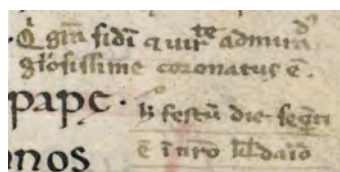 Q̇ gr̄a fidī ⁊ uirᵗᵉ admiran̄ᵈᵃ
glōsissime coronatus ē.
pape. h̄ festū die seq̄ti
nos ē ī nr̄o kl̄dario